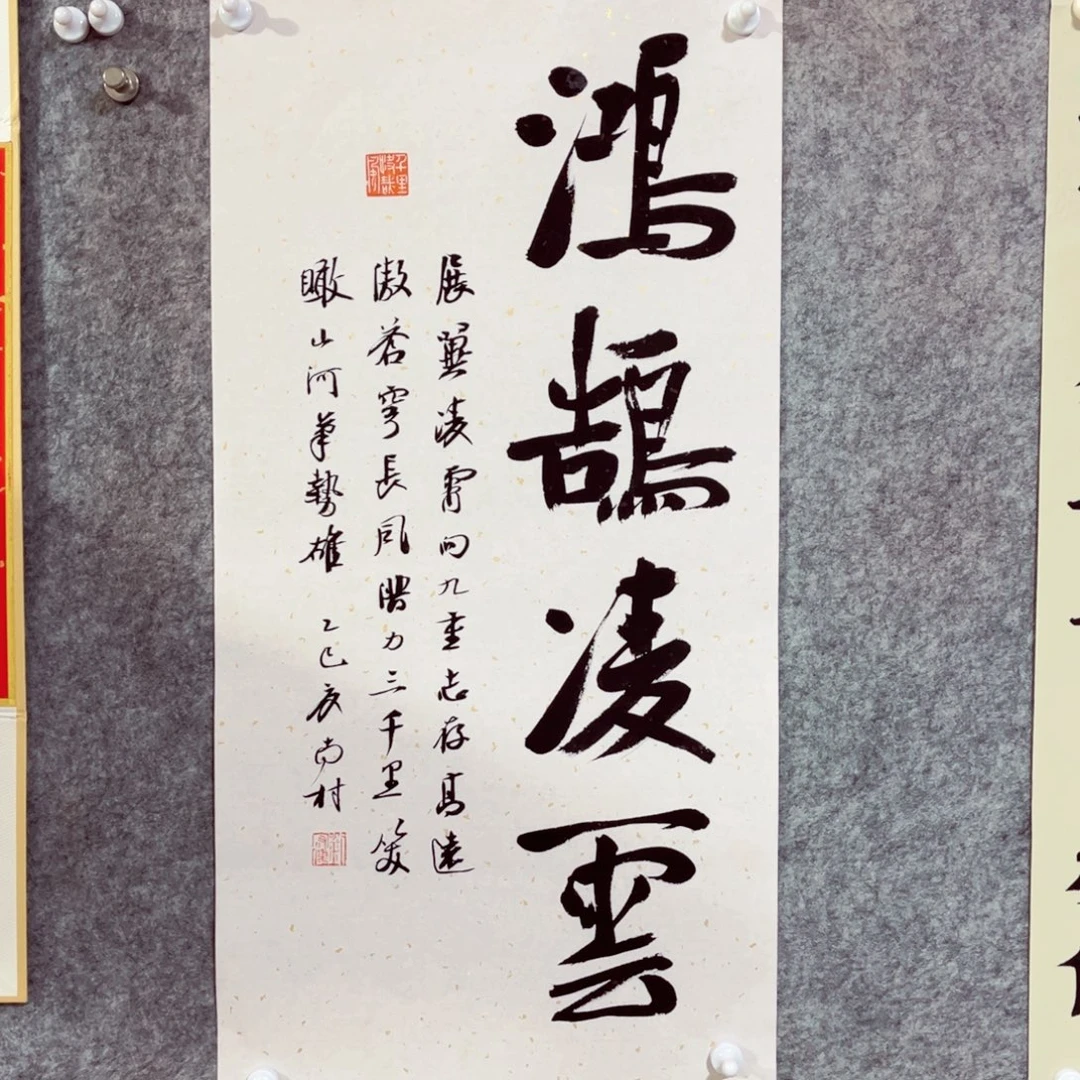 鴻鵠凌雲
展翼凌霄向九重志存高遠
傲蒼穹長風闊力三千里笑
瞰山河氣勢雄 乙巳 尚村